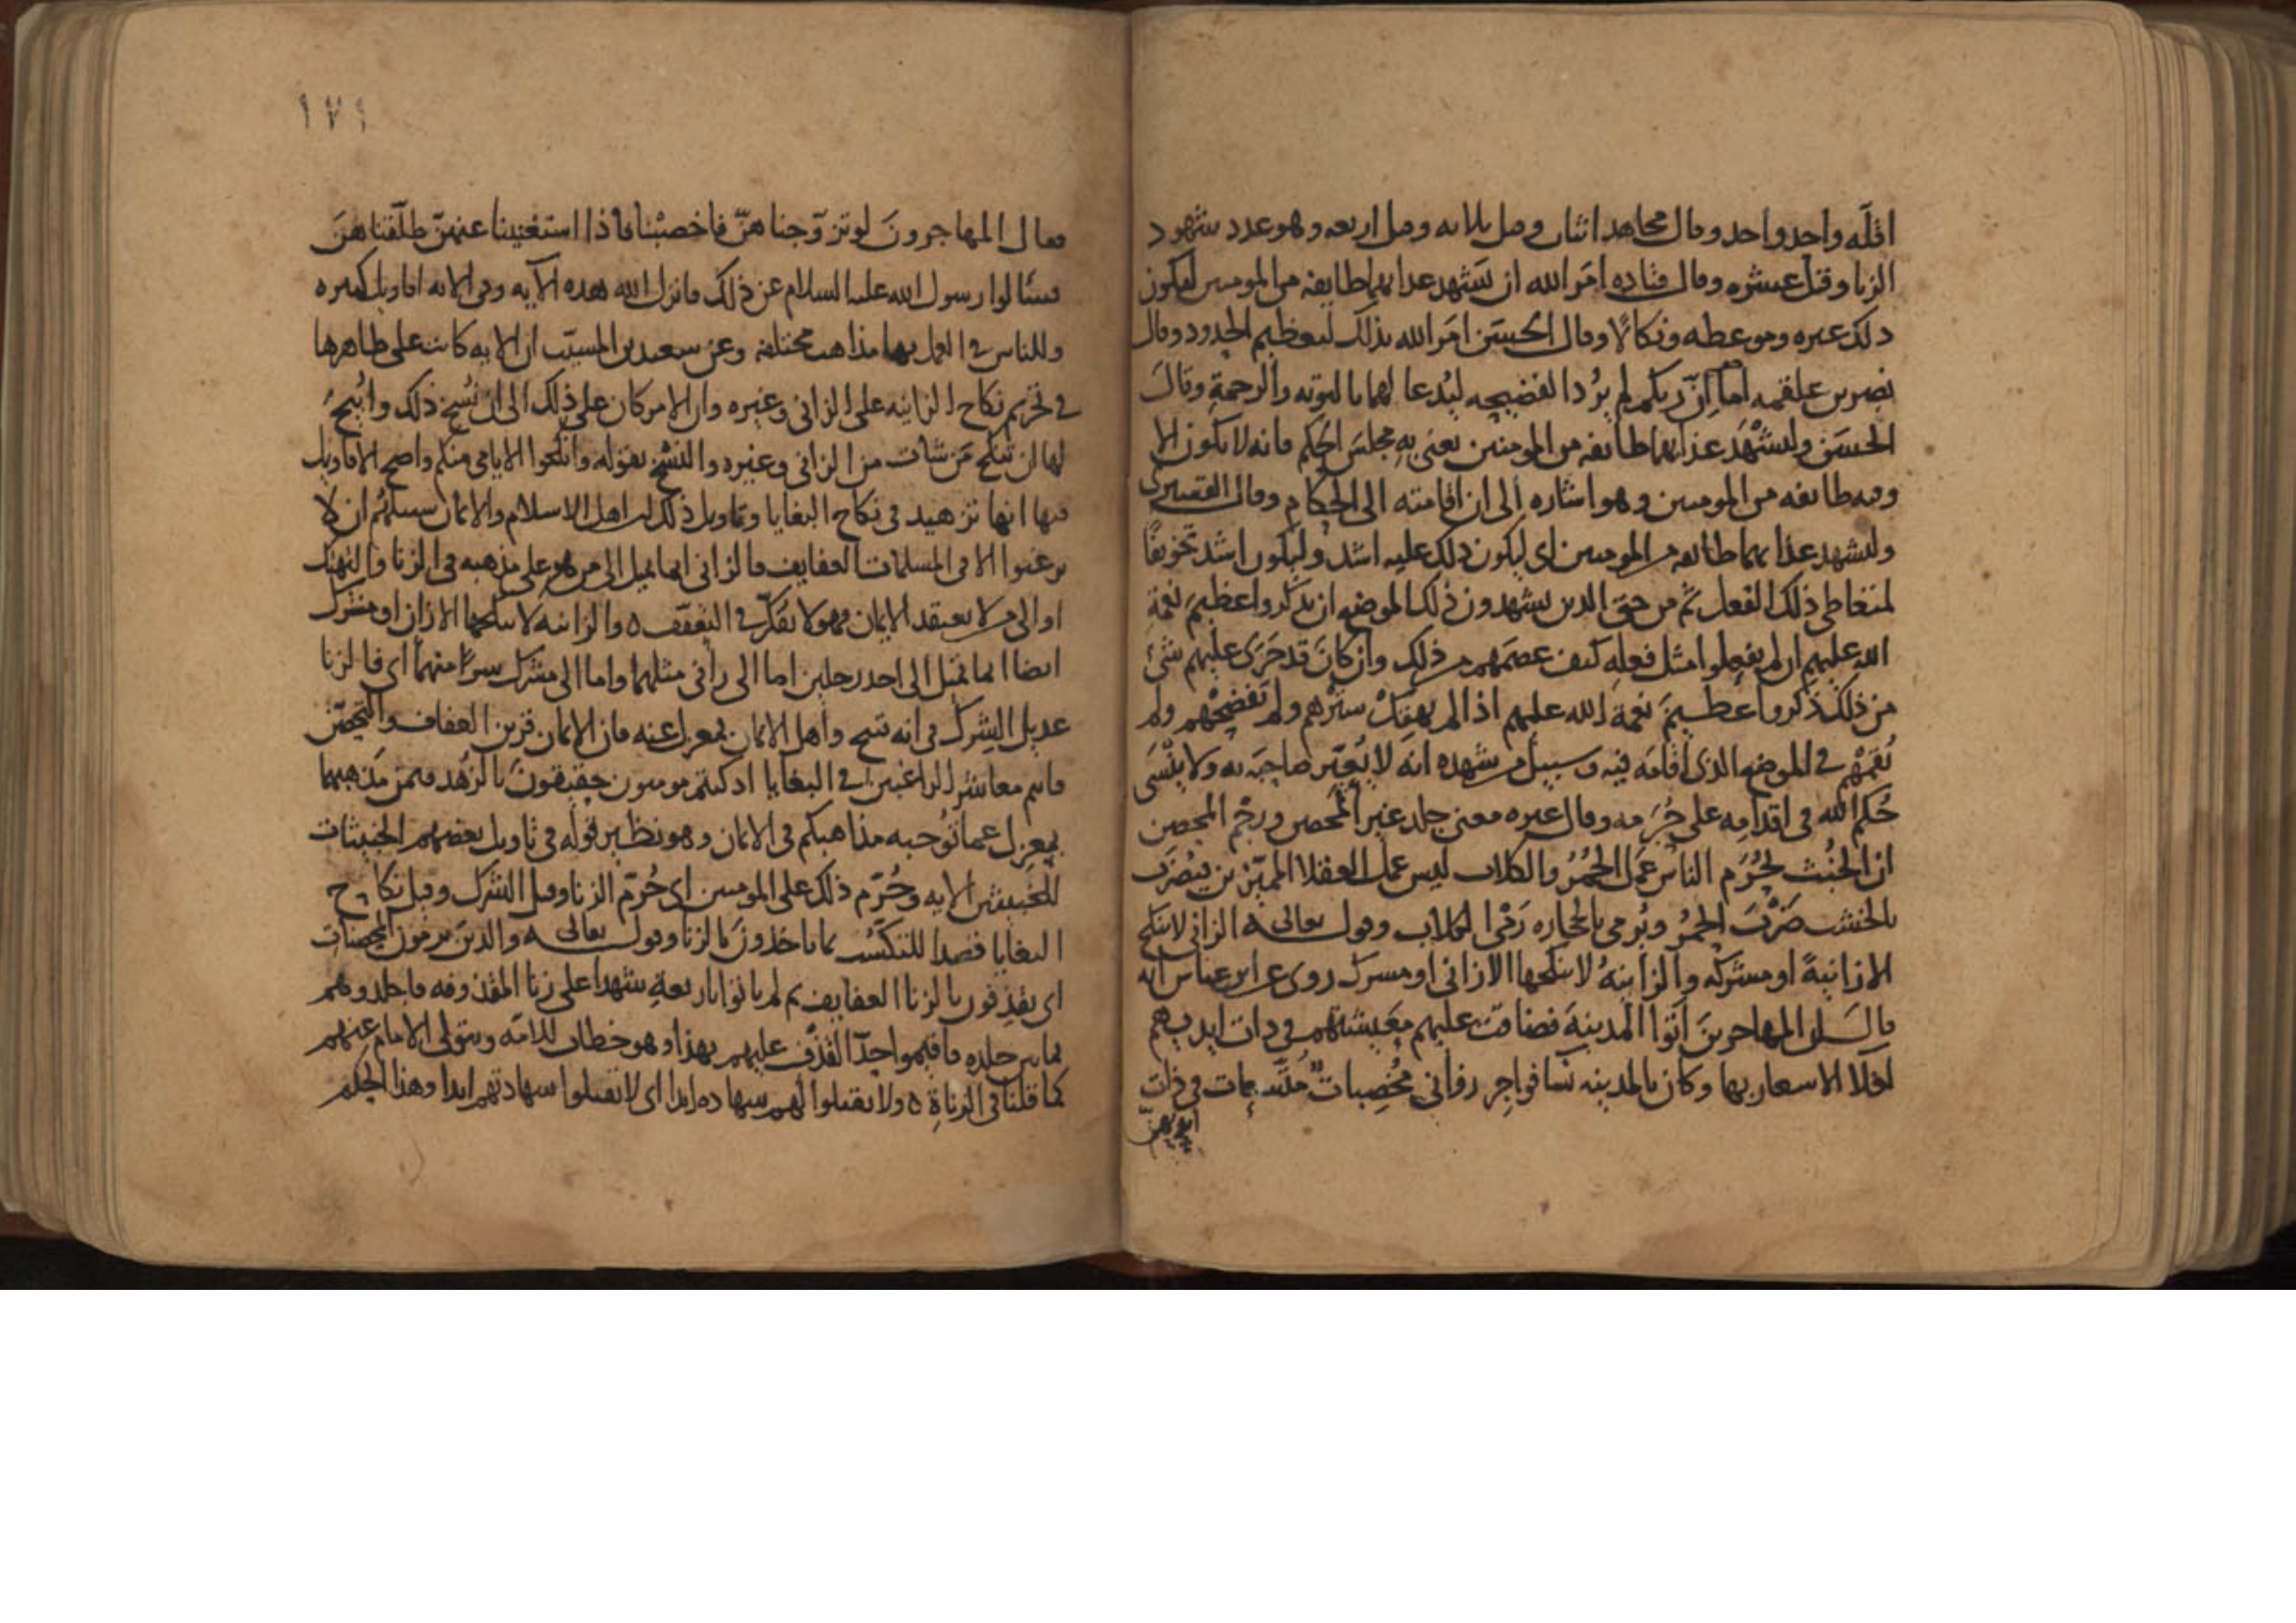 اقله واحد واحد وقال مجاهد اثنان وقيل ثلاثه وقيل اربعه وهو عدد شهود
الزنا وقيل عشره وقال قتاده امَر الله ان يَشهد عذابهما طايفه من المومنين ليكون
ذلك عبره وموعظه ونكالًا وقال الحسَن امَر الله بذلك لتعظيم الحدود وقال
نصر بن علقمه اما اِنّ ربكم لم يُرد الفضيحه ليُدعا لهما بالتوبه والرحمةِ وقالَ
الحسَن وليشْهَد عذابهما طايفه من المومنين يعنى بهِ مجلسَ الحكم فانه لا يكون الا
وفيه طايفه من المومنين وهو اشاره اِلى ان اقامته الى الحكام وقال القشيرى
وليشهد عذابهما طايفه من المومنين اى ليكون ذلك عليه اشد وليكون اشد تخويفًا
لمتعاطى ذلك الفعل ثم من حق الذين يشهدون ذلك الموضع ان يذكروا عظيمَ نعمةِ
الله عليهم ان لم يفعلوا مثل فعله كيف عصَمهم من ذلك وان كانَ قد جَرَى عليهم شئ
من ذلك ذكروا عظيمَ نعمةِ الله عليهم اذا لم يهتك سترهم ولم يَفضحْهم ولم
يُقمْهم فى الموضع الذى اقامَه فيه وسبيل من شهده انه لا يُعيّر صاحبَه به ولا يَنْسَى
حُكم الله فى اقدامِه على جُرمه وقال غيره معنى جلد غير المحصن ورجْم المحصن
ان الخبُث بحُرَم الناس عمَل الحُمُر والكلاب ليس عمل العقلا المميّزين فيُضرَب
بالخشب ضَرْبَ الحُمُر ويُرمى بالحجاره رَمْىَ الكلاب وقول تعالى ه الزانى لا ينكح
الا زانيةً او مشركه والزانيهُ لا ينكحها الا زانى او مشرك روى عن ابن عباس انه
قال انّ المهاجرينَ اَتَوا المدينةَ فضاقت عليهم مَعيشتهم فى ذات ايديهم
لغلا الاسعار بها وكان بالمدينه نسا فواجِر زوانى مُخْصِبات متسِعات فى ذات
ايديهنّ
١٧٩
فقال المهاجرونَ لو تزوّجنا هنّ فاخصبْنا فاذا استغنينا عنهنّ طلّقناهنَ
فسئالوا رسول الله عليه السلام عن ذلك فانزل الله هذه الآيه وفى الايه اقاويل كثيره
وللناس فى العمل بها مذاهب مختلفه وعن سعيد بن المسيّب ان الايه كانت على ظاهرها
فى تحريم نكاح الزانيه على الزانى وغيره وان الامر كان على ذلك الى ان نُسخ ذلك واُبيحَ
لها ان تنكح مَن شات من الزانى وغيره والنسْخ بقوله وانكحوا الايامى منكم واصح الاقاويل
فيها انها تزهيد فى نكاح البغايا وتاويل ذلك ان اهل الاسلام والايمان سبيلهُم ان لا
يرغبوا الا فى المسلمات العفايف فالزانى انما يميل الى من هو على مذهبه فى الزنا والتهتك
او الى من لا يعتقد الايمان فهو لا يفكّر فى التعفّف ه والزانيه لا ينكحها الا زان او مشرك
ايضا انما تميل الى احد رجلين اما الى زانى مثلها واما الى مشرك سرًا منهما اى فالزنا
عديل الشرك فى انه قبيح واهل الايمان بمعزل عنه فان الايمان قرين العفاف والتحصّن
فانتم معاشر الراغبين فى البغايا اذ كنتم مومنون حقيقونَ بالزهد فيمن مَذهبهما
بمعزل عما تُوجبه مذاهبكم فى الايمان وهو نظير قوله فى تاويل بعضهم الخبيثات
للخبيثين الايه وحُرّم ذلك على المومنين اى حُرّم الزنا وقيل الشرك وقيل نكاح
البغايا قصدا للتكسّب بما ياخذونَ بالزنا وقول تعالى ه والذينَ يرمون المحصنات
اى يقذِفون بالزنا العفايف ثم لم ياتوا باربعةِ شهدا على زنا المقذوفه فاجلدوهم
ثمانين جلده فاقيموا حدّ القذف عليهم بهذا وهو خطاب للامّه ويتولى الامام عنهم
كما قلنا فى الزناةِ ه ولا تقبلوا لهم شهاده ابدا اى لا تقبلوا شهادتهم ابدا وهذا الحكم